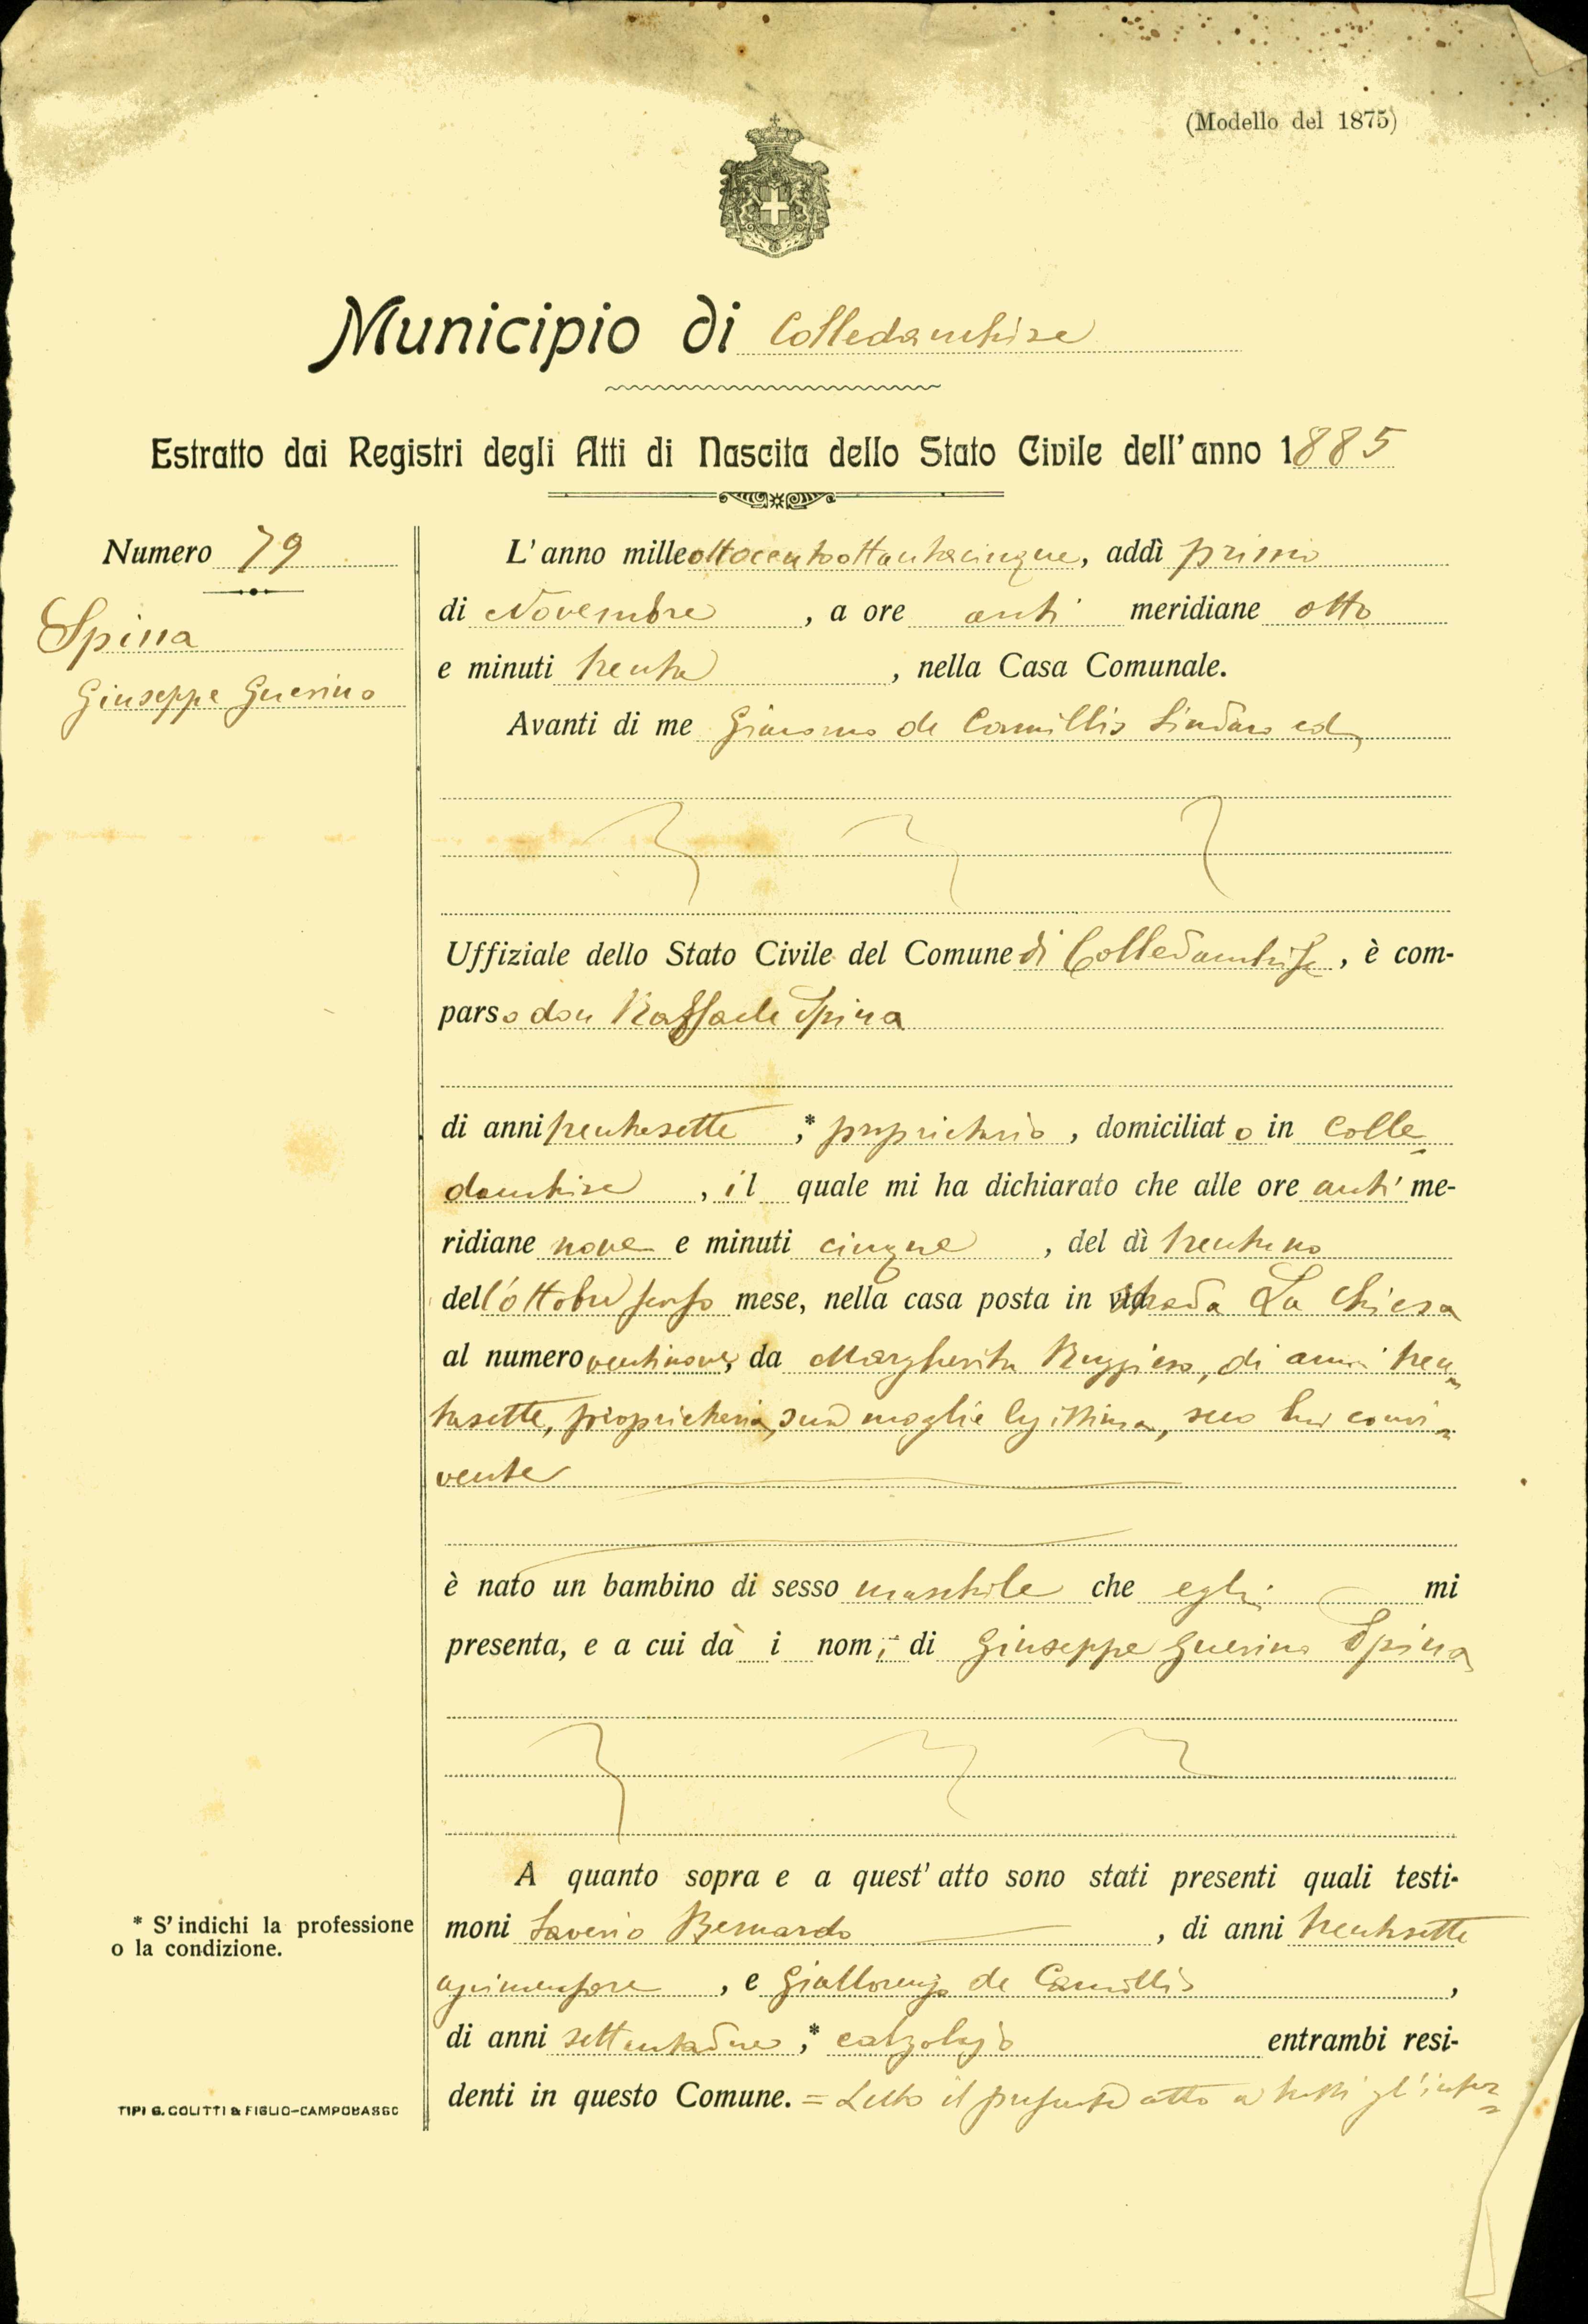 (Modello del 1875)
Municipio di Colledanchise
Estratto dai Registri degli Atti di Nascita dello Stato Civile dell'anno 1885
Numero 79
Spina
Giuseppe Guerino
L'anno milleottocentoottantacinque, addì primo
di Novembre, a ore anti meridiane otto
e minuti trenta, nella Casa Comunale.
Avanti di me Giacomo de Camillis Sindaco ed
Uffiziale dello Stato Civile del Comune di Colledanchise, è com-
parso don Raffaele Spina
di anni trentasette,* proprietario, domiciliato in Colle-
danchise, il quale mi ha dichiarato che alle ore anti me-
ridiane nove e minuti cinque, del dì trentuno
dell'ottobre scorso mese, nella casa posta in strada La Chiesa
al numero ventinove, da Margherita Ruggiero, di anni tren-
tasette, proprietaria, sua moglie legittima, seco lui convi-
vente
è nato un bambino di sesso maschile che egli mi
presenta, e a cui dà i nomi di Giuseppe Guerino Spina
A quanto sopra e a quest'atto sono stati presenti quali testi-
moni Saverio Bernardo, di anni trentasette
agrimensore, e Giallorenzo de Camillis,
di anni settantadue,* calzolajo entrambi resi-
denti in questo Comune. = Letto il presente atto a tutti gl'inter-
* S'indichi la professione
o la condizione.
TIPI G. COLITTI & FIGLIO-CAMPOBASSO